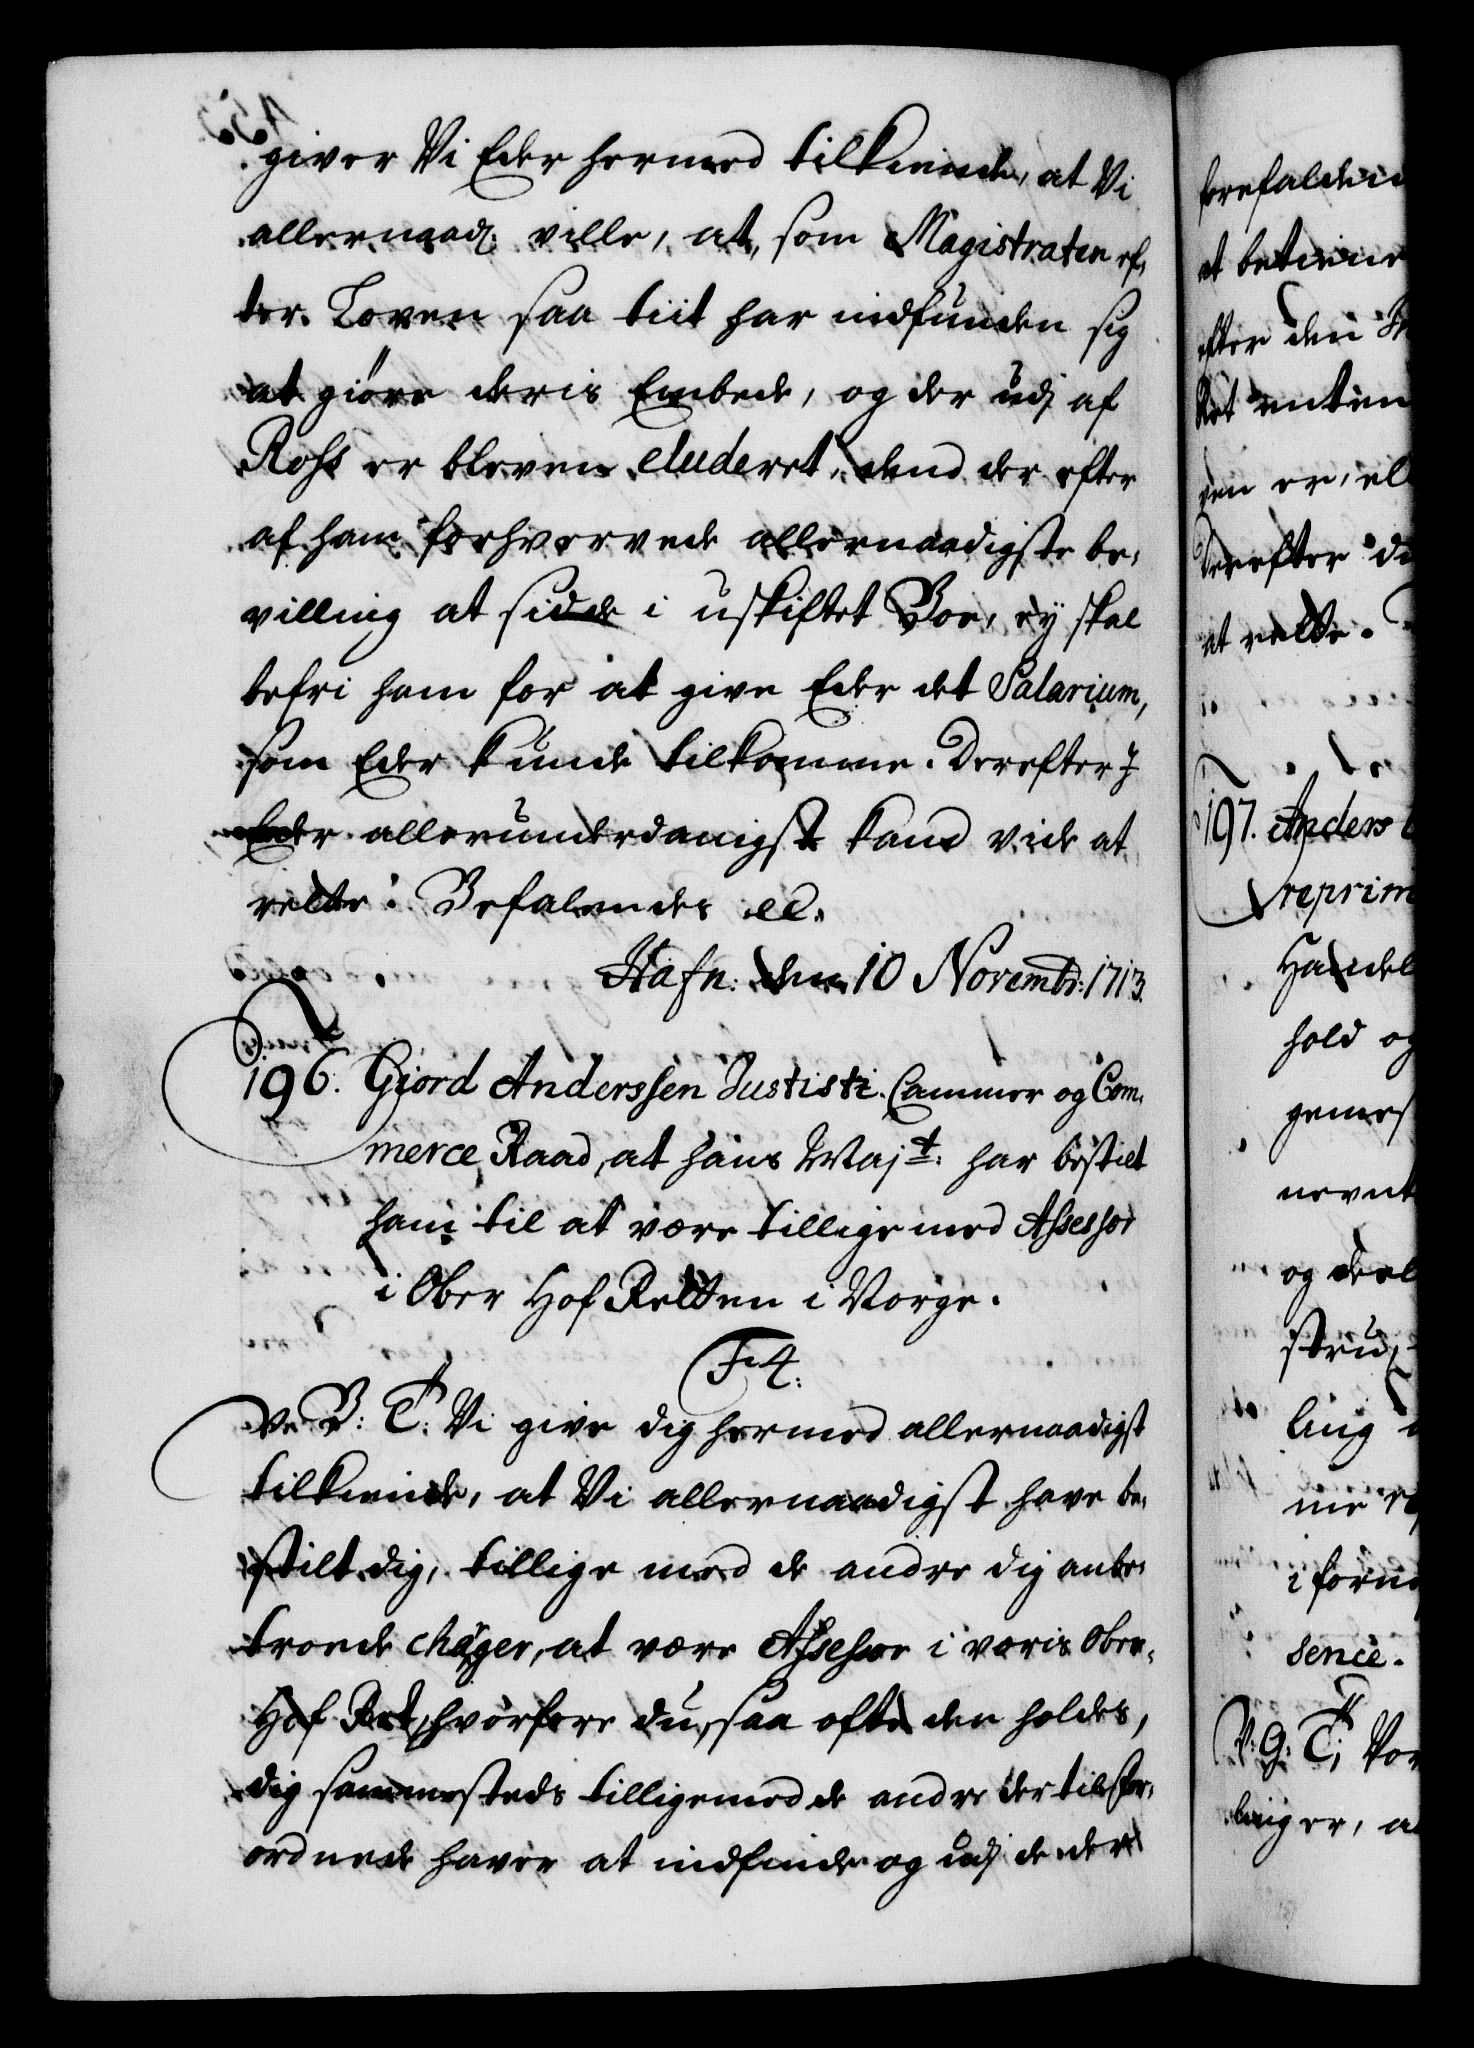 giver Vi Eder hermed tilkiende, at Vi
allernaad: ville, at, som Magistraten ef,
ter Loven saa tiit har indfunden sig
at giøre deris Embede, og der udj af
Rohs er bleven eluderet, dend der efter
af ham forhvervede allernaadigste be,
villing at sidde i uskiftet Boe, ey skal
befri ham for at give Eder det Salarium,
som Eder kunde tilkomme. Derefter I
Eder allerunderdanigst kand vide at
rette. Befalendes etc.
Hafn: den 10 Novembr: 1713.
196. Giord Anderssen Justisti. Cammer og Com,
merce Raad, at hans Maj.t: har bestilt
ham til at være tillige med Assessor
i Ober Hof Retten i Norge.
F 4:
V. G: T: Vi give dig hermed allernaadigst
tilkiende, at Vi allernaadigst have be,
stilt dig, tillige med de andre dig anbe,
troede charger, at være Assessor i voris Ober,
Hof Ret, hvorfore du, saa ofte den holdes,
dig sammesteds tilligemed de andre dertil for,
ordnede haver at indfinde og udj de der
forefaldend
at betiene
efter den
Ret
den er, el
Derefter du
at rette.
197. Anders
reprim
Handel
hold og
gemes
nevnt
og deel
strux
ling
me
i forn
sence.
V: G: T: Vor
linger, at